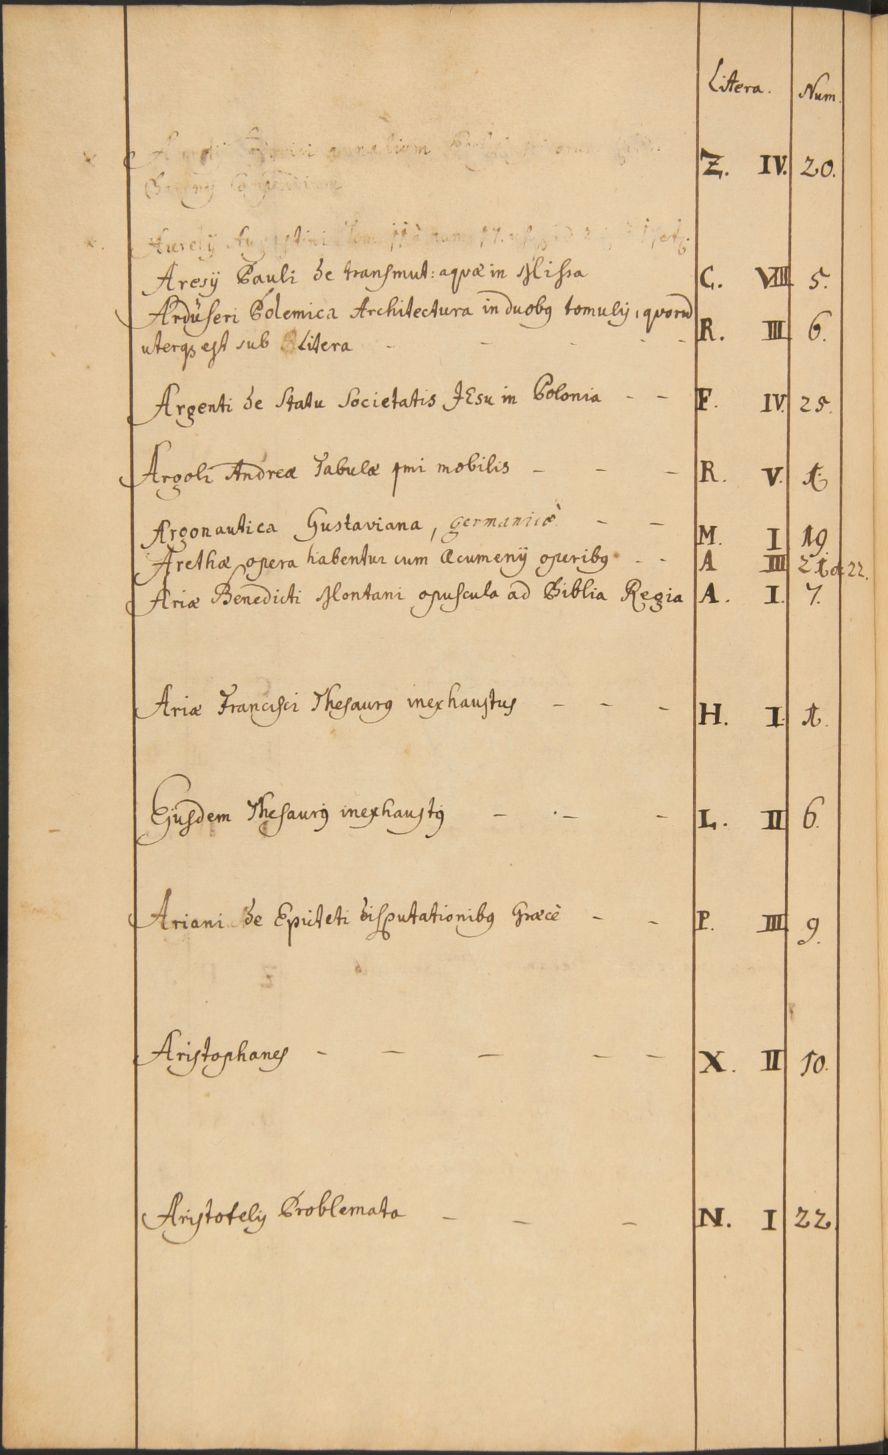 Litera. Num.
Z. IV. 20.
Aresÿ Pauli de transmut: aquæ in Missa C. VIII. 5.
Ardüseri Polemica Architectura in duobq tomulis, quorum
uterqz est sub Litera - - - - - R. III. 6.
Argenti de Statu Societatis JEsu in Polonia - - F. IV. 25.
Argoli Andreæ Tabulæ pmi mobilis - - - R. V. 1.
Argonautica Gustaviana, germanicè - - M. I 19
Arethæ opera habentur cum Œcumenÿ operibq - - A III 21 et 22.
Ariæ Benedicti Montani opuscula ad Biblia Regia A. I. 7.
Ariæ Francisci Thesaurq inexhaustus - - - H. I. 1.
Ejusdem Thesaurq inexhaustq - - - L. II 6.
Ariani de Epicteti disputationibq Græcè - - P. III. 9.
Aristophanes - - - - - X. II 10.
Aristotelis Problemata - - - N. I 22.